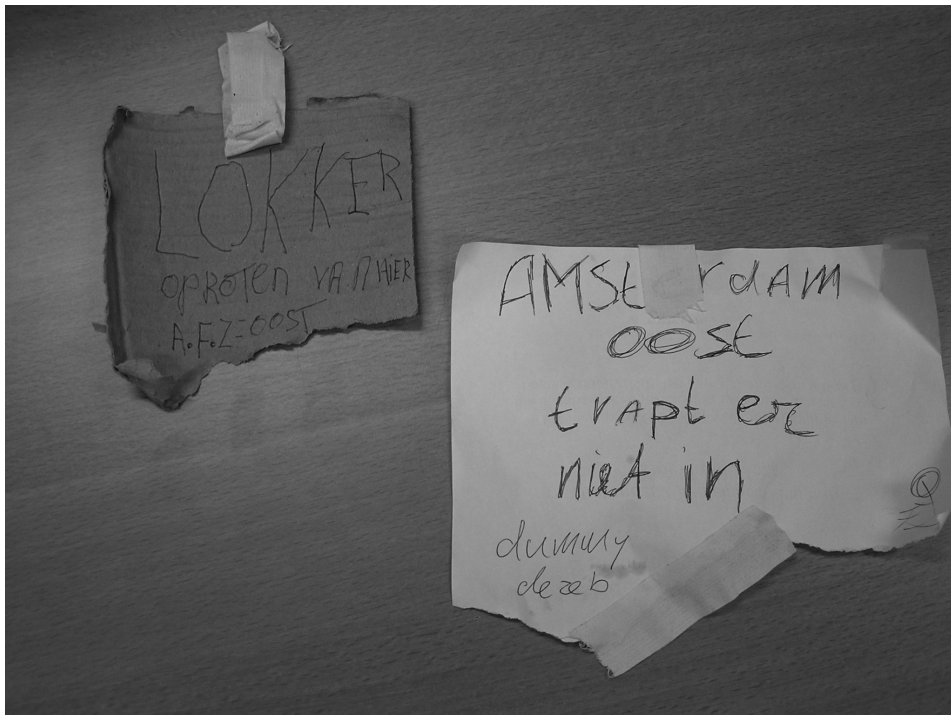 LOKKER
OPROTEN VAN HIER
A.F.Z-OOST
AMSterdAM
OOSt
trApt er
niet in
dummy